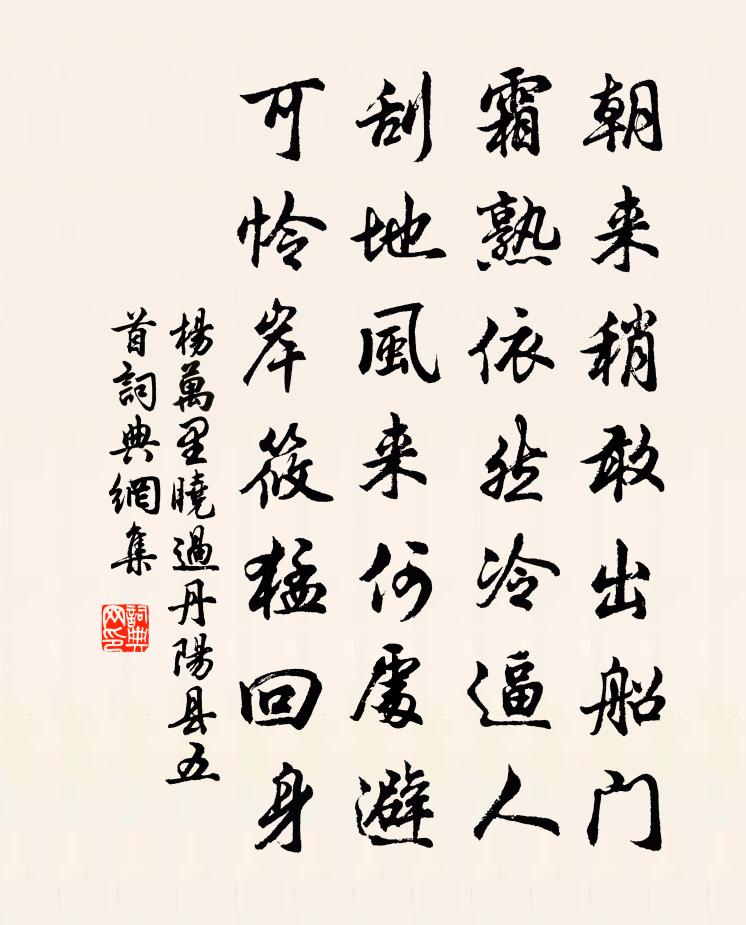 朝来稍敢出船门
霜熟依然冷逼人
刮地風来何處避
可怜岸筱猛回身
楊萬里曉過丹陽县五
首詞典網集
詞典
网印